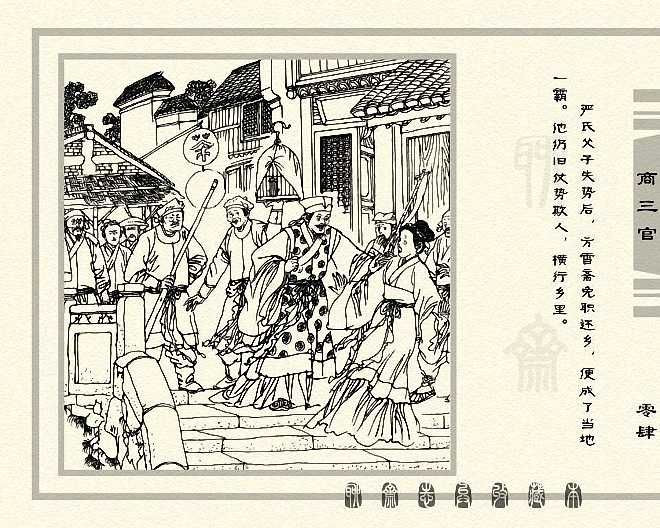 严氏父子失势后，方霄斋免职还乡，便成了当地
一霸。他仍旧仗势欺人，横行乡里。
商三官
零肆
聊斋志异收藏本
茶